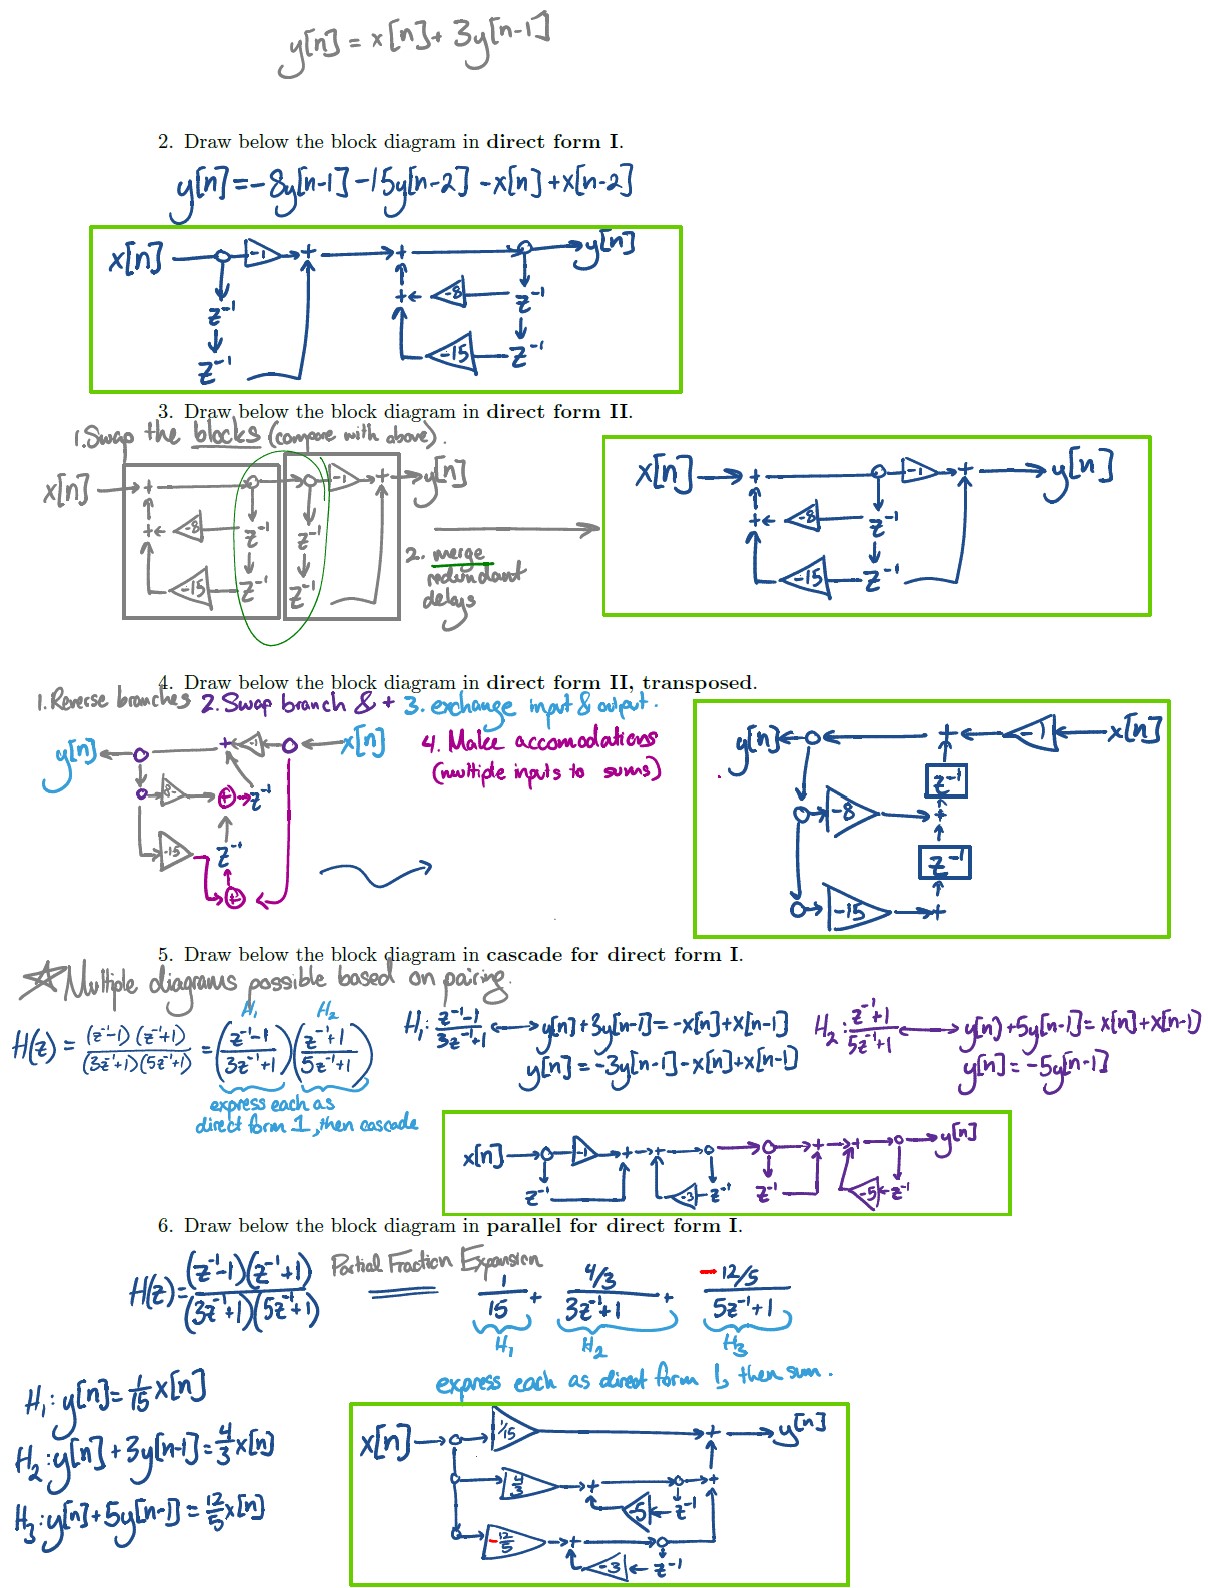 y[n] = x[n] + 3y[n-1]
2. Draw below the block diagram in direct form I.
y[n] = -8y[n-1] -15y[n-2] -x[n] +x[n-2]
x[n] -1 + + y[n]
z⁻¹ + -8 z⁻¹
z⁻¹ -15 z⁻¹
3. Draw below the block diagram in direct form II.
1. Swap the blocks (compare with above).
x[n] + -1 + y[n]
+ -8 z⁻¹ z⁻¹
-15 z⁻¹ z⁻¹
2. merge
redundant
delays
x[n] + -1 + y[n]
+ -8 z⁻¹
-15 z⁻¹
4. Draw below the block diagram in direct form II, transposed.
1. Reverse branches 2. Swap branch & + 3. exchange input & output.
y[n] + -1 x[n]
8- + z⁻¹
-15 z⁻¹
+
4. Make accomodations
(multiple inputs to sums)
y[n] + -1 x[n]
z⁻¹
-8 +
z⁻¹
-15 +
5. Draw below the block diagram in cascade for direct form I.
☆ Multiple diagrams possible based on pairing.
H₁ H₂
H(z) = (z⁻¹-1)(z⁻¹+1)/(3z⁻¹+1)(5z⁻¹+1) = (z⁻¹-1/3z⁻¹+1)(z⁻¹+1/5z⁻¹+1)
express each as
direct form 1, then cascade
H₁: z⁻¹-1/3z⁻¹+1 ↔ y[n]+3y[n-1]=-x[n]+x[n-1]
y[n] = -3y[n-1]-x[n]+x[n-1]
H₂: z⁻¹+1/5z⁻¹+1 ↔ y[n]+5y[n-1]=x[n]+x[n-1]
y[n] = -5y[n-1]
x[n] -1 + + + + y[n]
z⁻¹ -3 z⁻¹ z⁻¹ -5 z⁻¹
6. Draw below the block diagram in parallel for direct form I.
H(z) = (z⁻¹-1)(z⁻¹+1)/(3z⁻¹+1)(5z⁻¹+1) Partial Fraction Expansion = 1/15 + 4/3/3z⁻¹+1 + -12/5/5z⁻¹+1
H₁ H₂ H₃
express each as direct form 1, then sum.
H₁: y[n] = 1/15 x[n]
H₂: y[n] + 3y[n-1] = 4/3 x[n]
H₃: y[n]+5y[n-1] = 12/5 x[n]
x[n] 1/15 + y[n]
4/3 + +
-5 z⁻¹
-12/5 +
-3 z⁻¹